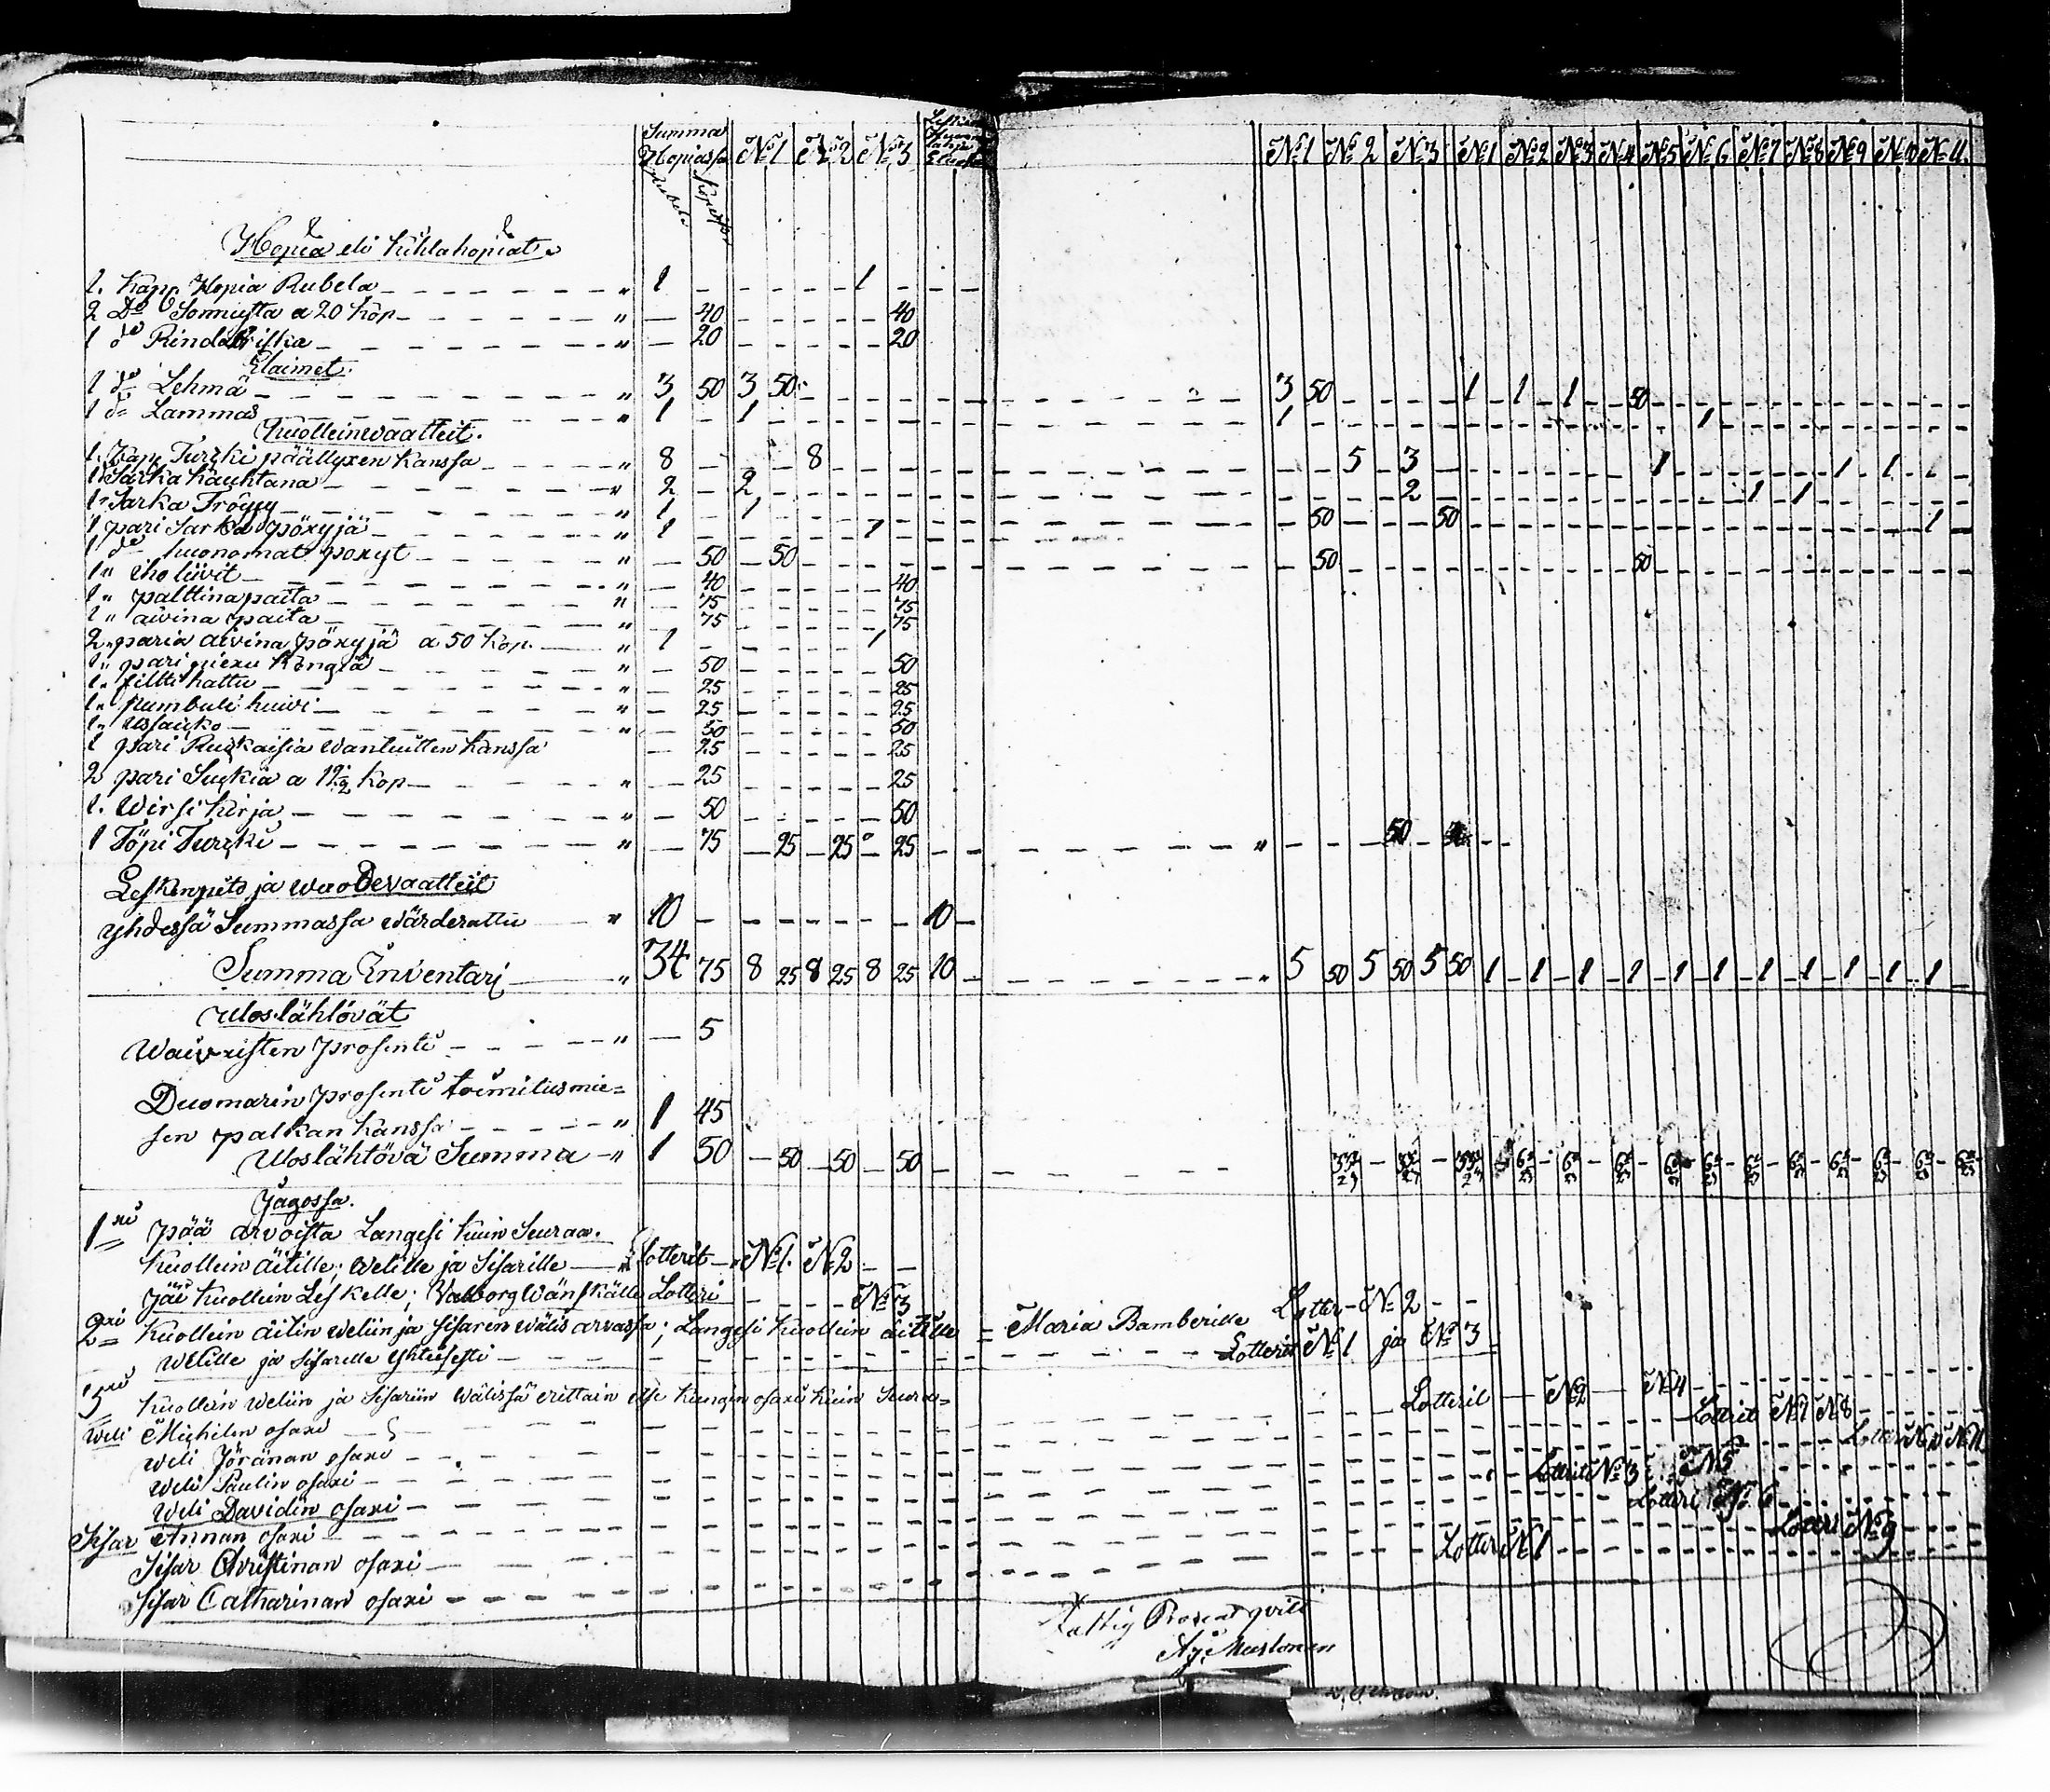 Summa Hopiassa N:o 1 N:o 2 N:o 3 N:o 1 N:o 2 N:o 3 N:o 1 N:o 2 N:o 3 N:o 4 N:o 5 N:o 6 N:o 7 N:o 8 N:o 9 N:o 10 N:o 11
Rubela Kopekor
Hopia eli kihlahopiat
1. Kapp. Hopia Rubela „ 1 1
2 Do Sormusta a 20 Kop „ 40 40
1 do Rindakriska „ 20 20
Elaimet.
1 do Lehmä „ 3 50 3 50 3 50 1 1 1 50
1 do Lammas „ 1 1 1 1
Kuolleinwaatteit.
1. Kapp Turcki päällyxen kanssa „ 8 8 5 3 1 1 1
1 Sarka kauhtana „ 2 2 2 1 1
1 Sarka Tröijy „ 1 1 50 50 1
1 pari Sarka pöxyjä „ 1 1
1 do huonomat poxyt „ 50 50 50 50
1 „ iho liivit „ 40 40
1 „ palttina paita „ 75 75
1 „ aivina paita „ 75 75
2 „ paria aivina pöxyjä a 50 Kop. „ 1 1
1 „ pari piexu Kengiä „ 50 50
1 „ filtti hattu „ 25 25
1 „ pumbuli huivi „ 25 25
1 „ 50 50
1 pari Ruckaisia wantuitten kanssa 25 25
2 pari Suckia a 12 1/2 kop „ 25 25
1. Wirsi kirja „ 50 50
1 Töpi Turcki „ 75 25 25 25 „ 50
Leskenpito ja wuodevaatteit
yhdessä Summassa wärderattu „ 10 10
Summa Inventari „ 34 75 8 25 8 25 8 25 10 „ 5 50 5 50 5 50 1 1 1 1 1 1 1 1 1 1 1
Uloslähtövät
Waivaisten prosenti „ 5
Duomarin prosenti toimitusmie=
sen palkan kanssa „ 1 45
Uloslähtövä Summa „ 1 50 50 50 50
Jagossa.
1xi pää arvoista Langesi kuin Seuraa.
Kuollein äitille; Welille ja Sisarille Lotterit N:o 1. N:o 2
Jäi kuollein Leskelle; Valborg Wänskälle Lotteri N:o 3
2xi Kuollein äitin weliin ja Sisaren wälis arvassa; Langesi kuollein äitille = Maria Bamberille Lotter N:o 2
Welille ja Sisarelle Yhteisesti Lotterit N:o 1 ja N:o 3
3xi Kuollein weliin ja Sisariin wälissä erittain itse kungin osaxi kuin Seura=
Weli Michilin osaxi Lotterit N:o 2 N:o 4
Weli Jöränan osaxi Lotterit N:o 7 N:o 8
Weli Paulin osaxi Lotterit N:o 10 N:o 11
Weli Davidin osaxi Lotterit N:o 3 N:o 5
Sisar Annan osaxi Lotteri N:o 6
Sisar Christinan osaxi Lotteri N:o 9
Sisar Catharinan osaxi Lotteri N:o 1